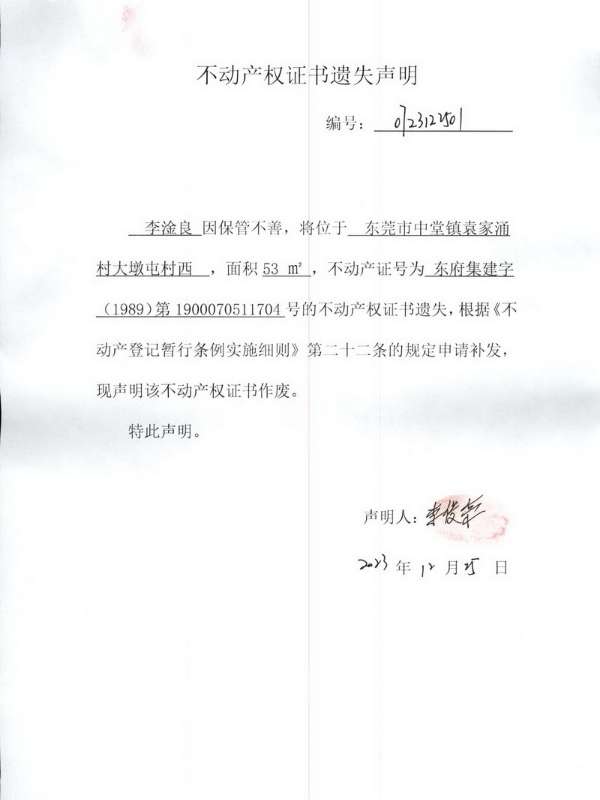 不动产权证书遗失声明
编号：0723122501
李淦良 因保管不善，将位于 东莞市中堂镇袁家涌
村大墩屯村西 ，面积 53 ㎡ ，不动产证号为 东府集建字
（1989）第 1900070511704 号的不动产权证书遗失，根据《不
动产登记暂行条例实施细则》第二十二条的规定申请补发，
现声明该不动产权证书作废。
特此声明。
声明人：
2023 年 12 月 25 日